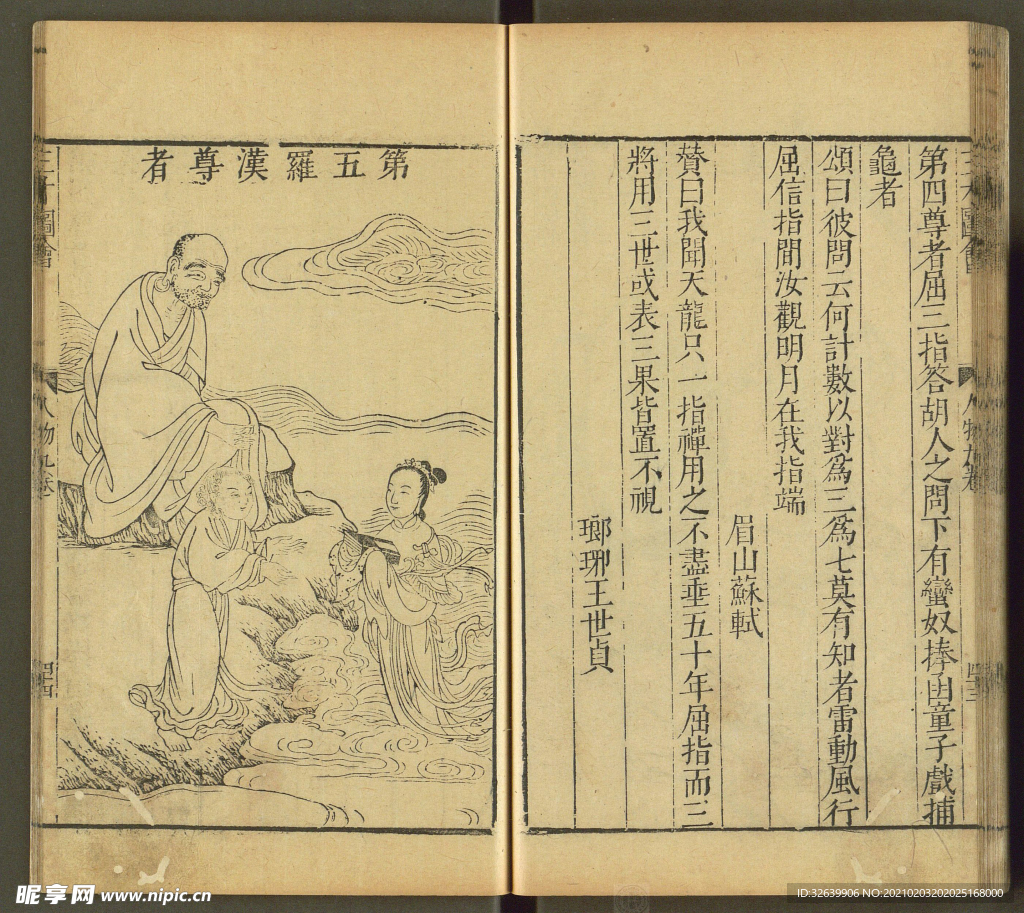 第四尊者屈三指答胡人之問下有蠻奴捧凾童子戲捕
龜者
頌曰彼問云何計數以對爲三爲七莫有知者雷動風行
屈信指間汝觀明月在我指端
眉山蘇軾
贊曰我聞天龍只一指禪用之不盡垂五十年屈指而三
將用三世或表三果皆置不視
瑯琊王世貞
第五羅漢尊者
三才圖會
人物九卷
四十四
昵享网 www.nipic.cn
ID:32639906 NO:20210203202025168000